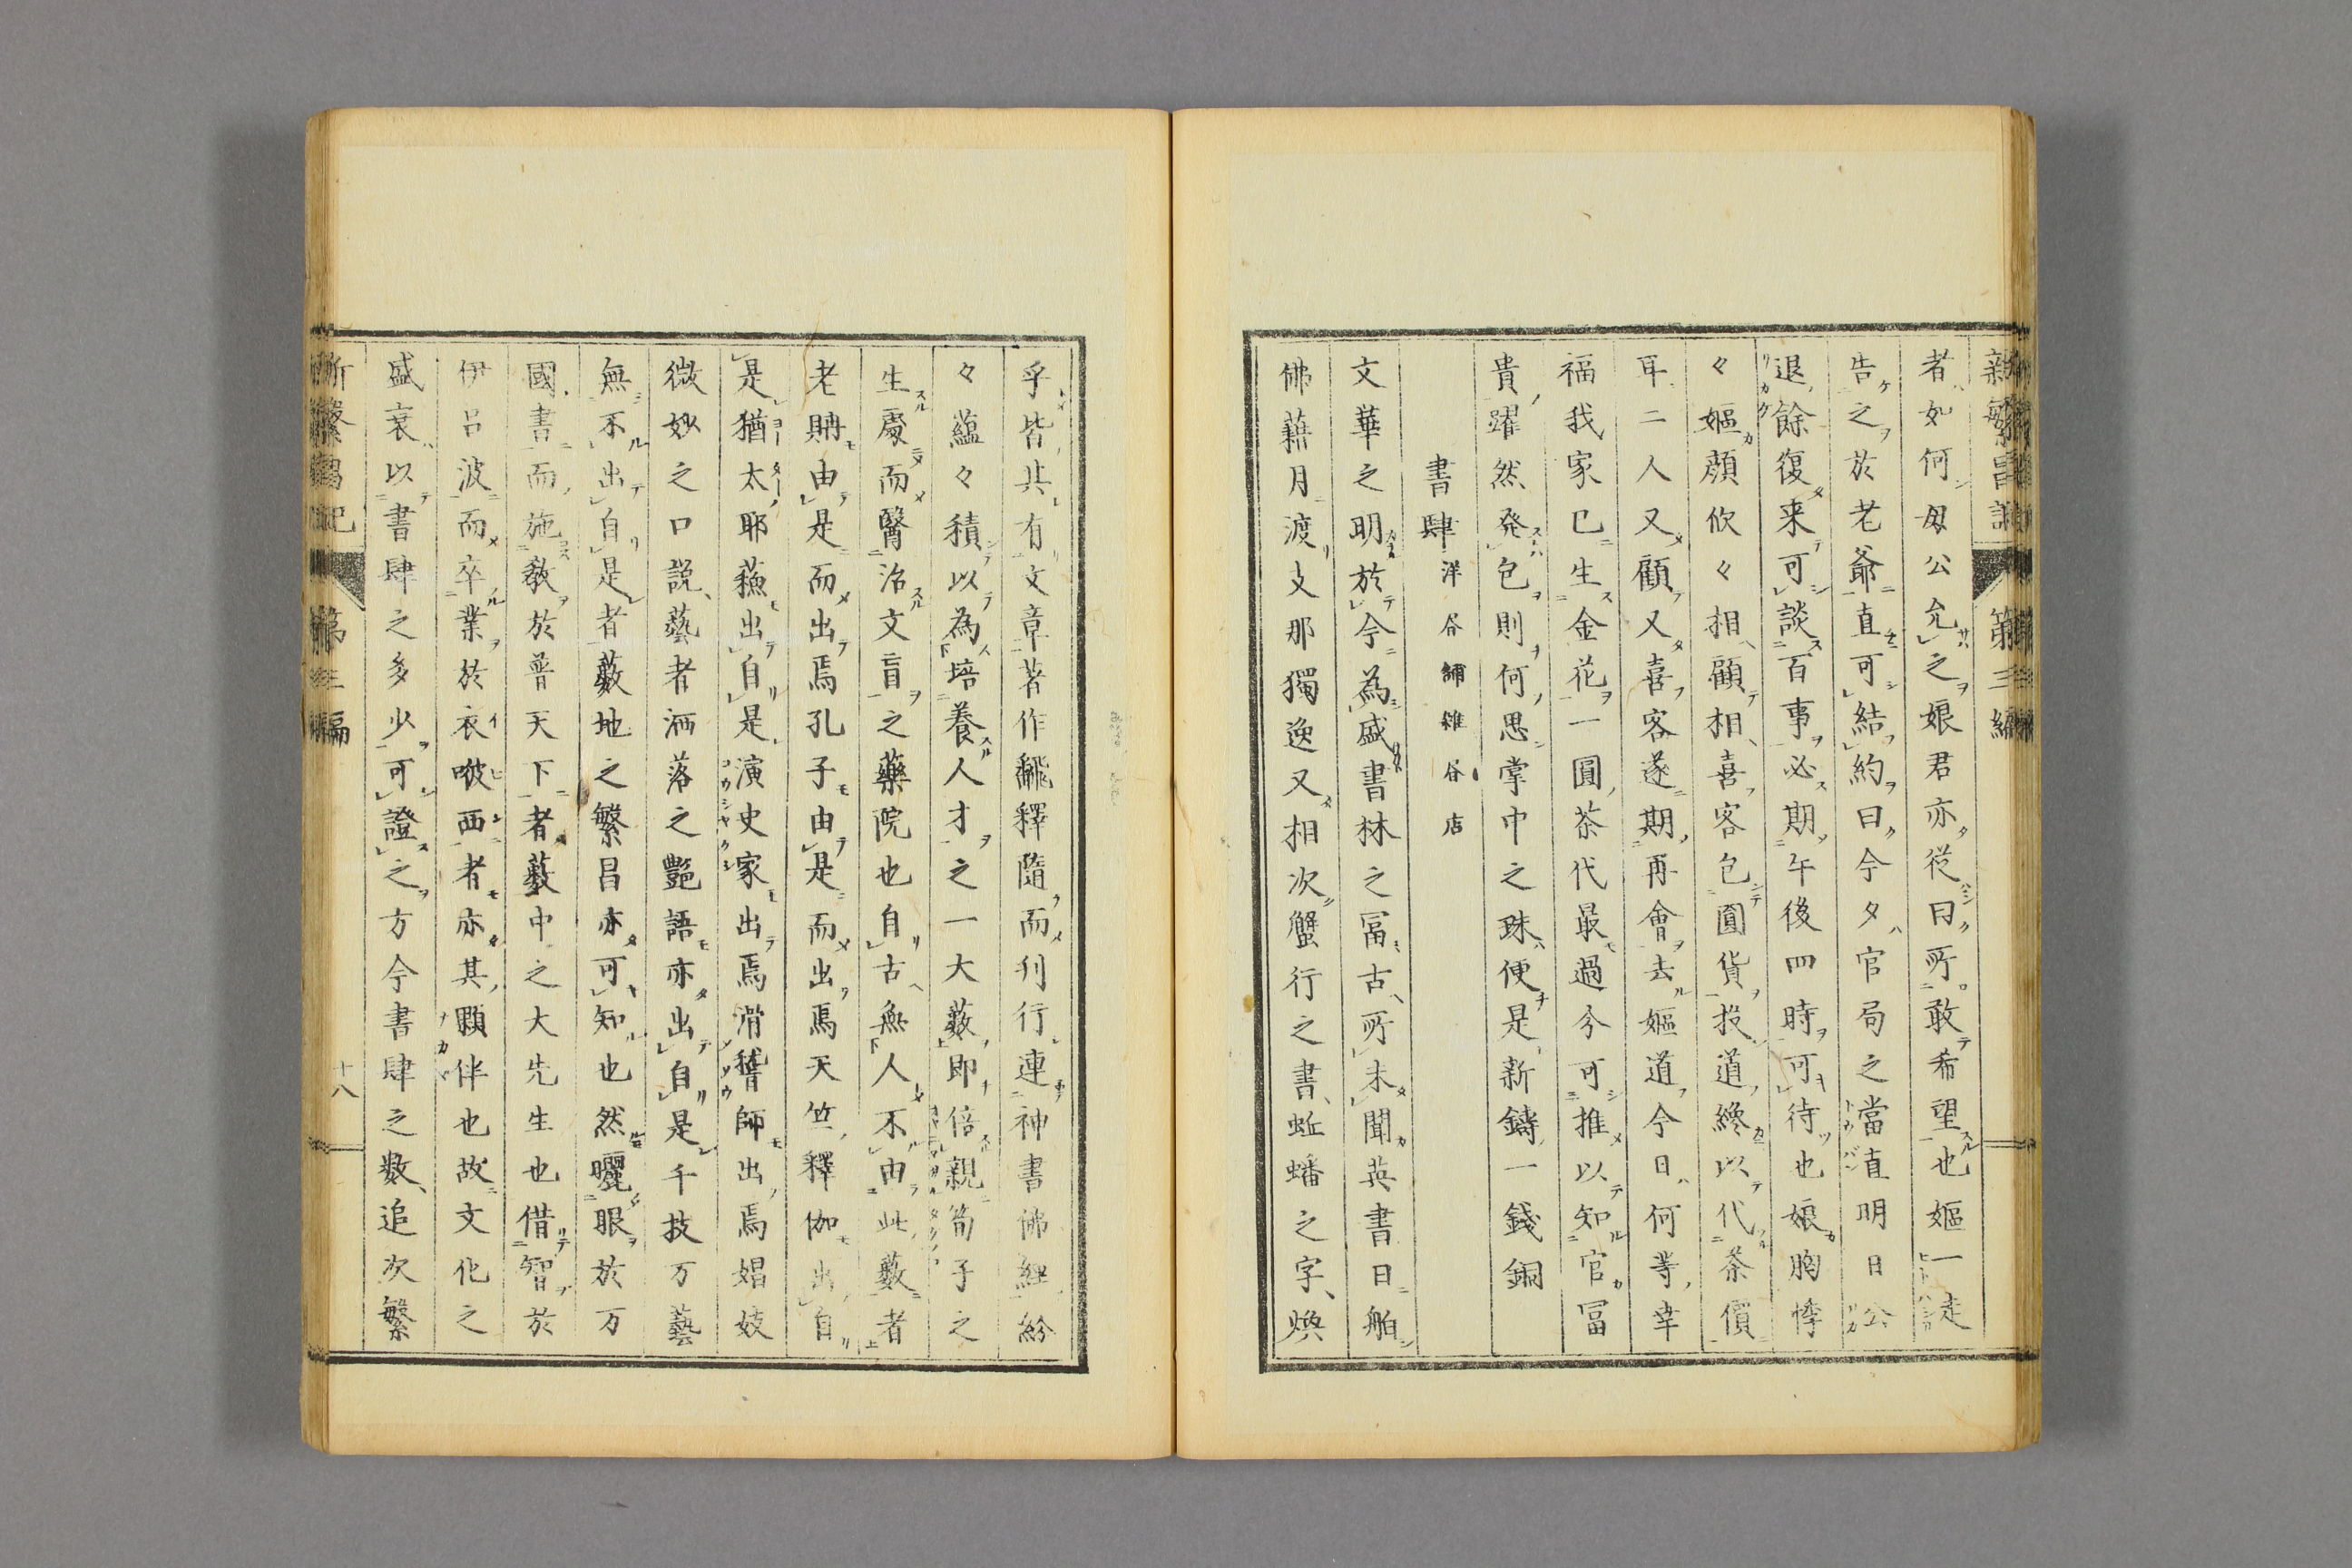 新繁昌記 第三編
者如何母公允之娘君亦從曰所敢希望也嫗一走
告之於老爺直可結約曰今夕官局之當直明日公
退餘復来可談百事必期午後四時可待也娘胸悸
々嫗顔欣々相顧相喜客包圓貨投道纔以代茶價
耳二人又顧又喜客遂期再會去嫗道今日何等幸
福我家已生金花一圓茶代最過今可推以知官冨
貴躍然発包則何思掌中之珠便是新鋳一錢銅
書肆 洋谷舗雑谷店
文華之明於今為盛書林之冨古所未聞英書日舶
佛藉月渡支那獨逸又相次蟹行之書蚯蟠之字煥
乎皆其有文章著作飜釋隨而刋行連神書佛經紛
々蘊々積以為培養人才之一大藪即倍親荀子之
生處而醫治文盲之藥院也自古無人不由此藪者
老聃由是而出焉孔子由是而出焉天竺釋伽出自
是猶太耶蘓出自是演史家出焉滑稽師出焉娼妓
微妙之口説藝者洒落之艶語亦出自是千技万藝
無不出自是者藪地之繁昌亦可知也然曬眼於万
國書而施教於普天下者藪中之大先生也借智於
伊呂波而卒業於衣啵西者亦其顆伴也故文化之
盛衰以書肆之多少可證之方今書肆之数追次繁
新繁昌記 第三編 十八